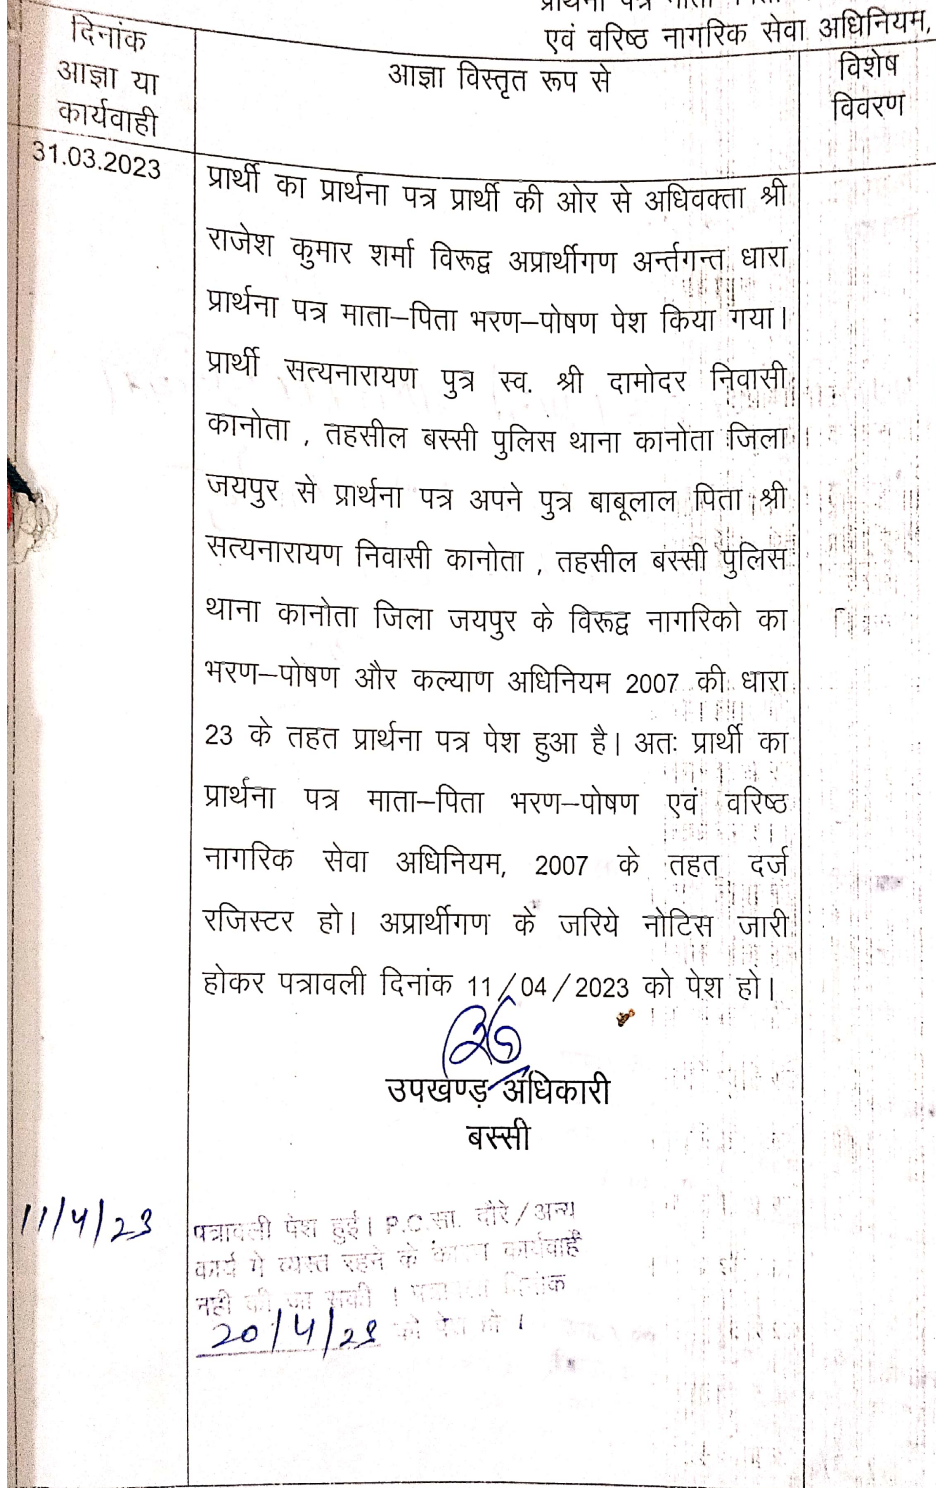 प्रार्थना पत्र माता
एवं वरिष्ठ नागरिक सेवा अधिनियम,
दिनांक
आज्ञा या
कार्यवाही
आज्ञा विस्तृत रूप से
विशेष
विवरण
31.03.2023
प्रार्थी का प्रार्थना पत्र प्रार्थी की ओर से अधिवक्ता श्री
राजेश कुमार शर्मा विरूद्व अप्रार्थीगण अर्न्तगन्त धारा
प्रार्थना पत्र माता–पिता भरण–पोषण पेश किया गया।
प्रार्थी सत्यनारायण पुत्र स्व. श्री दामोदर निवासी
कानोता , तहसील बस्सी पुलिस थाना कानोता जिला
जयपुर से प्रार्थना पत्र अपने पुत्र बाबूलाल पिता श्री
सत्यनारायण निवासी कानोता , तहसील बस्सी पुलिस
थाना कानोता जिला जयपुर के विरूद्व नागरिको का
भरण–पोषण और कल्याण अधिनियम 2007 की धारा
23 के तहत प्रार्थना पत्र पेश हुआ है। अतः प्रार्थी का
प्रार्थना पत्र माता–पिता भरण–पोषण एवं वरिष्ठ
नागरिक सेवा अधिनियम, 2007 के तहत दर्ज
रजिस्टर हो। अप्रार्थीगण के जरिये नोटिस जारी
होकर पत्रावली दिनांक 11/04/2023 को पेश हो।
उपखण्ड़ अधिकारी
बस्सी
11/4/23
पत्रावली पेश हुई। P.O.सा. दौरे/अन्य
कार्य मे व्यस्त रहने के कारण कार्यवाही
नही की जा सकी । पत्रावली दिनांक
20/4/23 को पेश हो ।